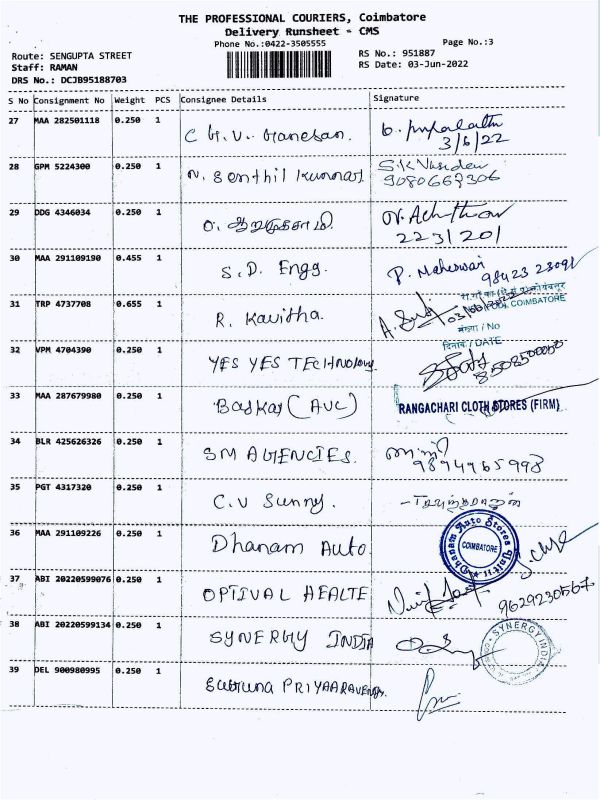 THE PROFESSIONAL COURIERS, Coimbatore
Delivery Runsheet - CMS
Phone No.:0422-3505555 Page No.:3
Route: SENGUPTA STREET RS No.: 951887
Staff: RAMAN RS Date: 03-Jun-2022
DRS No.: DCJB95188703
S No Consignment No Weight PCS Consignee Details Signature
27 MAA 282501118 0.250 1 C G.V. Ganesan.
3/6/22
28 GPM 5224300 0.250 1 N. Senthil Kumar S.K Vasudev
9080667306
29 DDG 4346034 0.250 1 O. ஆறுமுகசாமி
223/20/
30 MAA 291109190 0.455 1 S.D. Engg. P. Maheswari 98423 23091
31 TRP 4737708 0.655 1 R. Kavitha.
COIMBATORE
संख्या / No
दिनांक / DATE
32 VPM 4704390 0.250 1 YES YES TECHNOLOGY 8508500050
33 MAA 287679980 0.250 1 Baskar (AVC) RANGACHARI CLOTH STORES (FIRM)
34 BLR 425626326 0.250 1 SM AGENCIES. 9894465998
35 PGT 4317320 0.250 1 C.V Sunny.
36 MAA 291109226 0.250 1 Dhanam Auto. Dhanam Auto Stores
COIMBATORE
37 ABI 20220599076 0.250 1 OPTIVAL HEALTE 9629230567
38 ABI 20220599134 0.250 1 SYNERGY INDIA SYNERGY INDIA
39 DEL 900980995 0.250 1